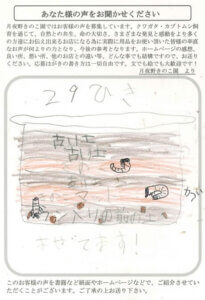 あなた様の声をお聞かせください
月夜野きのこ園ではお客様の声を募集しています。クワガタ・カブトムシ飼
育を通じて、自然との共生、命の大切さ、さまざまな発見と感動をより多く
の方達にお伝え出来るお店になる為に実際に用品をお使い頂いた皆様の率直
なお声が何よりの力となり、今後の参考となります。ホームページの感想、
良い所、悪い所、他のお店との違い等、どんな事でも結構ですので、お送り
ください。応募はがきの書き方は一切自由です。文でも絵でも大歓迎です!
月夜野きのこ園 より
29ひき
させてます!
このお客様の声を書籍など紙面やホームページなどで、ご紹介させていた
だくことがございます。ご了承の上お送り下さい。